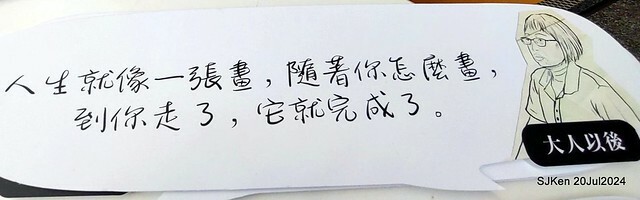 人生就像一張畫，隨著你怎麼畫，
到你走了，它就完成了。
大人以後
SJKen 20Jul2024